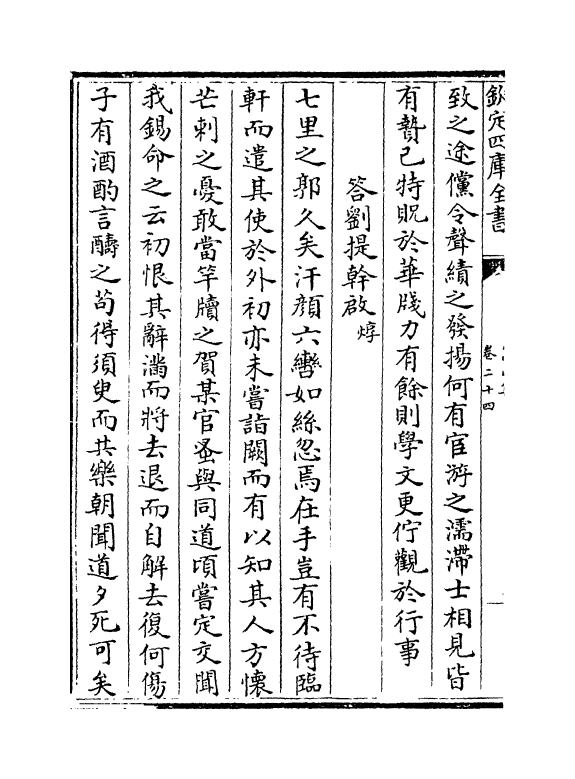 欽定四庫全書
卷二十四
致之途儻令聲績之發揚何有官游之濡滯士相見皆
有贄已特貺於華牋力有餘則學文更佇觀於行事
答劉提幹啟焞
七里之郭久矣汗顔六轡如絲忽焉在手豈有不待臨
軒而遣其使於外初亦未嘗詣闕而有以知其人方懷
芒刺之憂敢當竿牘之賀某官蚤與同道頃嘗定交聞
我錫命之云初恨其辭滿而將去退而自解去復何傷
子有酒酌言醻之苟得須臾而共樂朝聞道夕死可矣